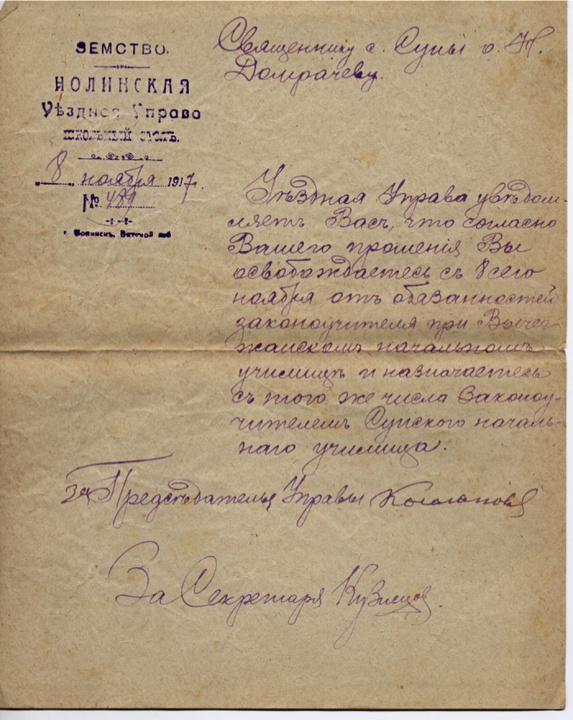 ЗЕМСТВО.
НОЛИНСКАЯ
Уѣздная Управа
ШКОЛЬНЫЙ СТОЛЪ.
„8“ ноября 1917г.
№ 489
г. Нолинскъ, Вятской губ.
Священнику с. Суны о. Н.
Домрачеву.
Уѣздная Управа увѣдом-
ляетъ Васъ, что согласно
Вашего прошенія Вы
освобождаетесь съ 8сего
ноября отъ обязанностей
законоучителя при
начальномъ
училищѣ и назначаетесь
съ того же числа законоу-
чителемъ Сунского началь-
наго училища.
За Предсѣдателя Управы
За Секретаря Кузнецов